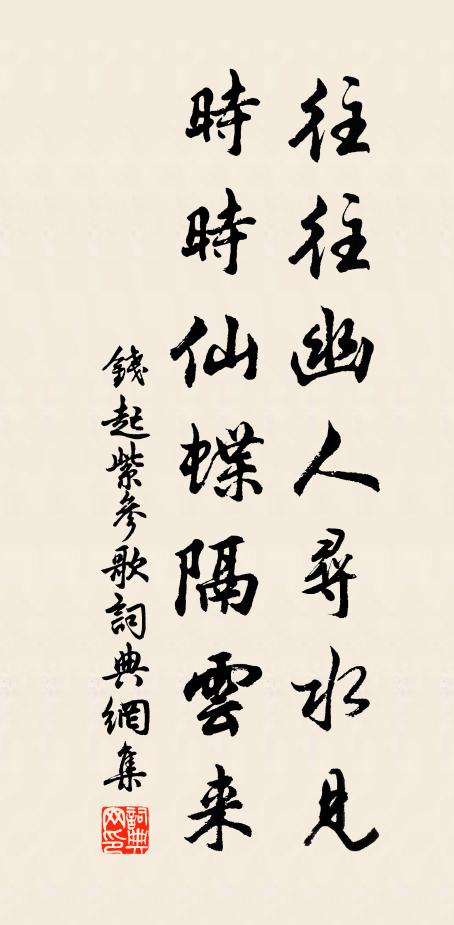 往往幽人尋水見
時時仙蝶隔雲来
錢起紫參歌詞典網集
詞典网印